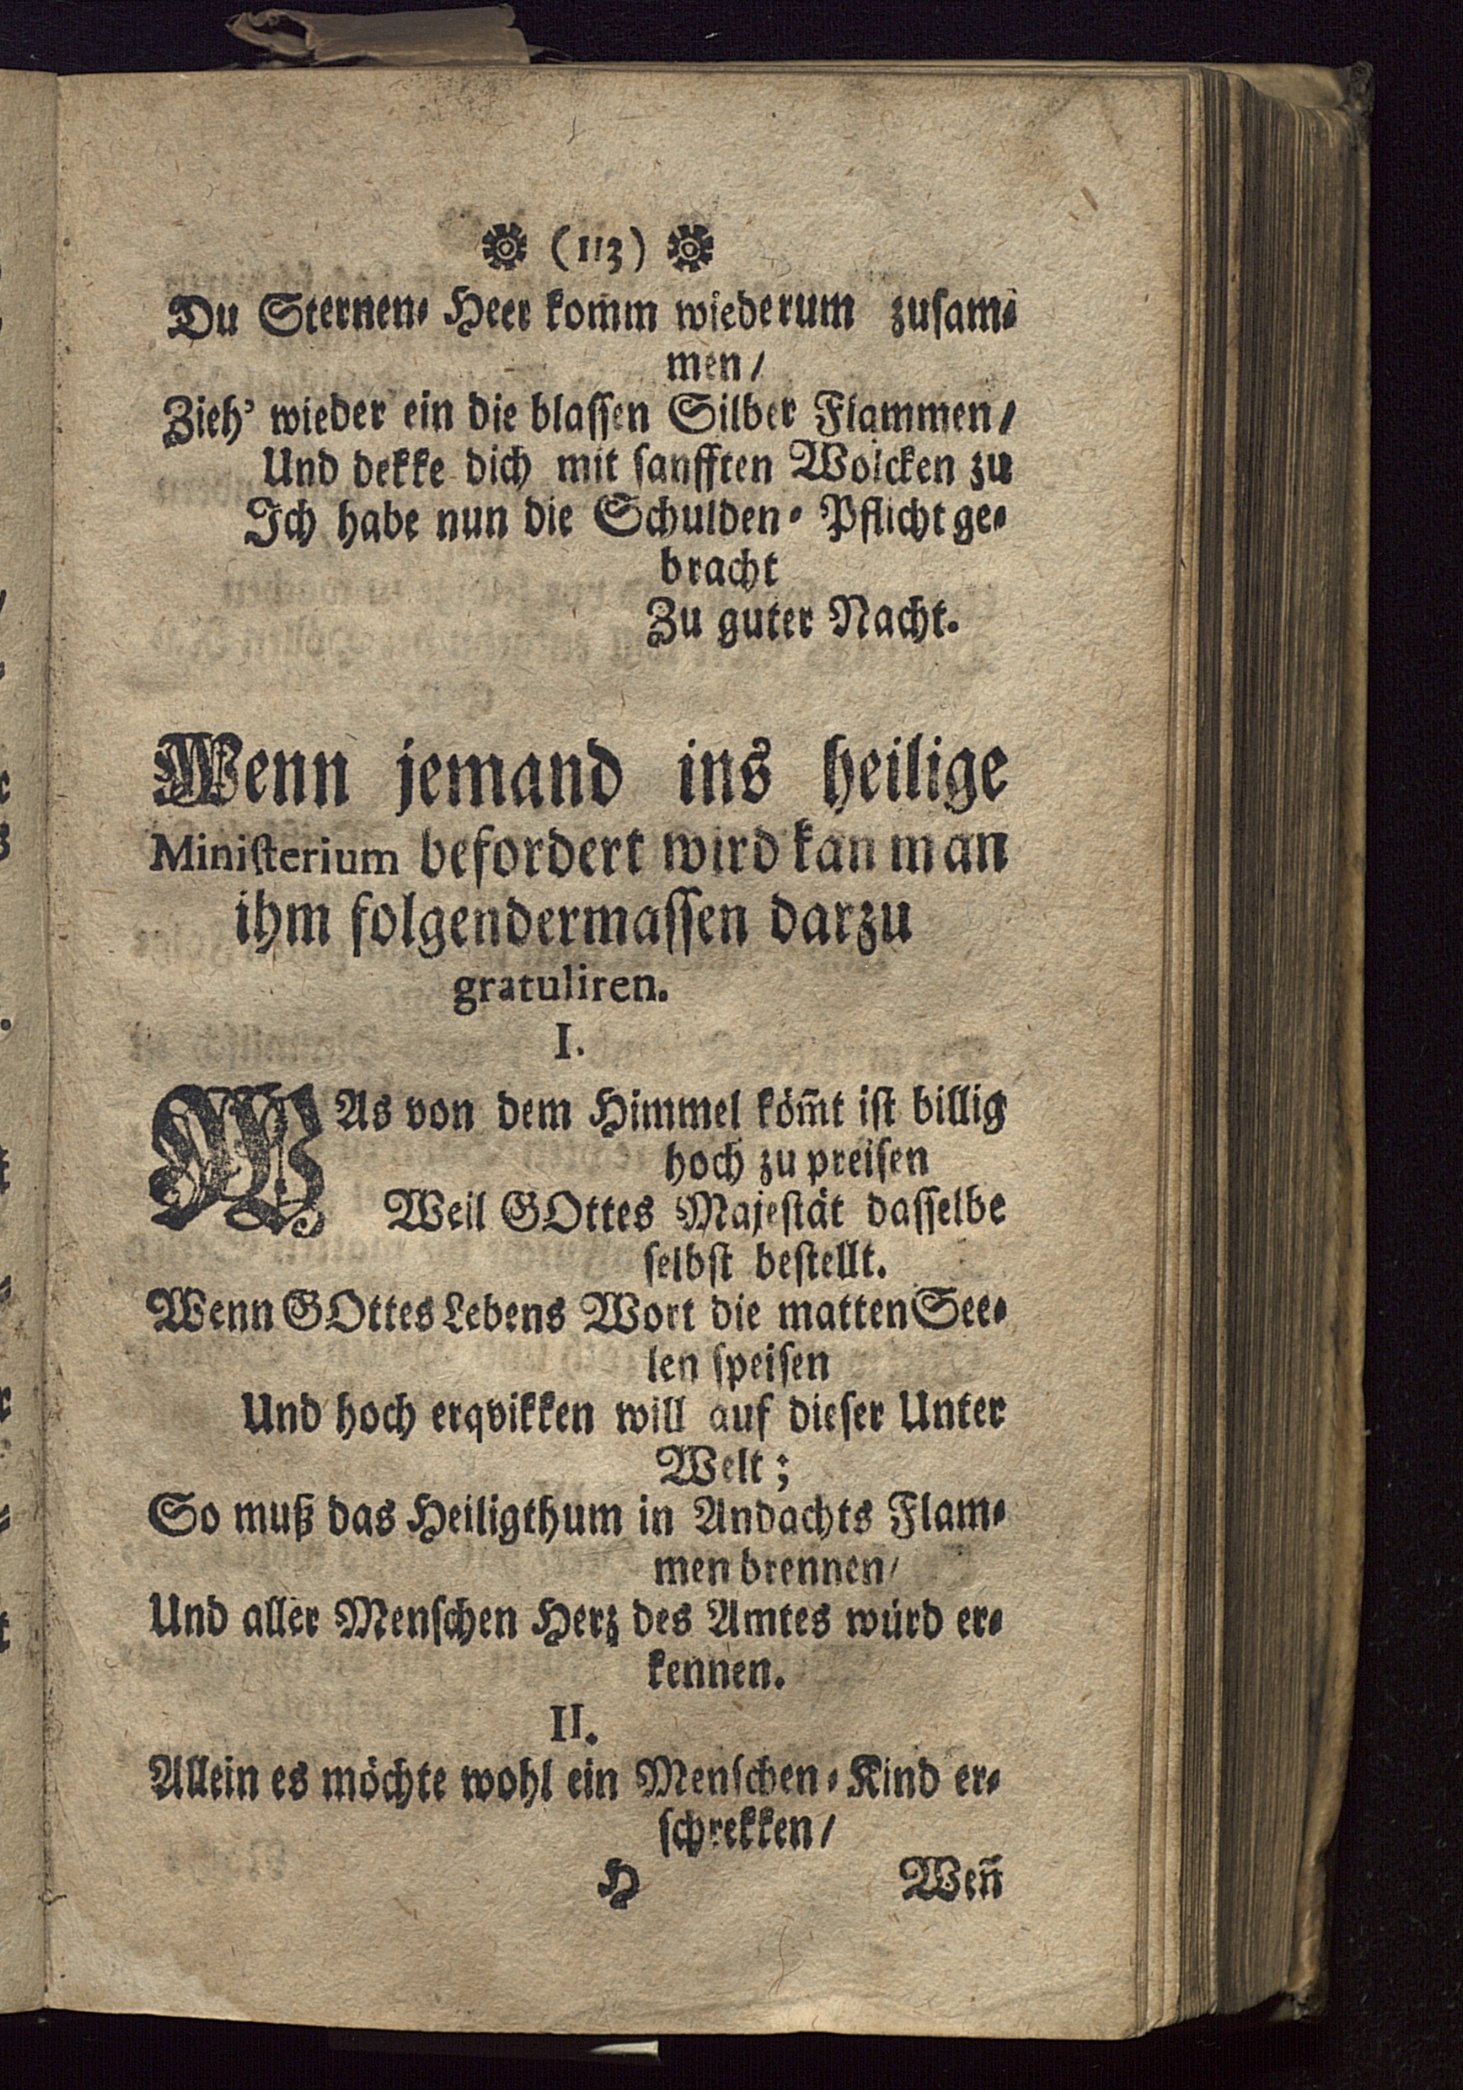 (113)
Du Sternen-Heer komm wiederum zusam-
men/
Zieh' wieder ein die blassen Silber Flammen/
Und dekke dich mit sanfften Wolcken zu
Ich habe nun die Schulden-Pflicht ge-
bracht
Zu guter Nacht.
Wenn jemand ins heilige
Ministerium befordert wird kan man
ihm folgendermassen darzu
gratuliren.
I.
WAs von dem Himmel köm̃t ist billig
hoch zu preisen
Weil GOttes Majestät dasselbe
selbst bestellt.
Wenn GOttes Lebens Wort die matten See-
len speisen
Und hoch erqvikken will auf dieser Unter
Welt;
So muß das Heiligthum in Andachts Flam-
men brennen/
Und aller Menschen Herz des Amtes würd er-
kennen.
II.
Allein es möchte wohl ein Menschen-Kind er-
schrekken/
H Weñ